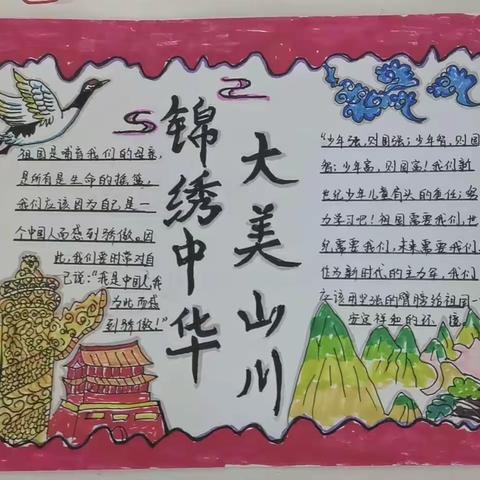 锦绣中华
大美山川
祖国是哺育我们的母亲,
是所有生命的摇篮,
我们应该因为自己是一
个中国人而感到骄傲。因
此,我们要时常对自
己说:"我是中国人,我
为此而感
到骄傲!"
"少年强,则国强;少年智,则国
智;少年富,则国富!我们新
世纪少年儿童肩头的责任;努
力学习吧!祖国需要我们,世
界需要我们,未来需要我们。
作为新时代的主力军,我们
应该用坚强的臂膀给祖国一
安定祥和的环境